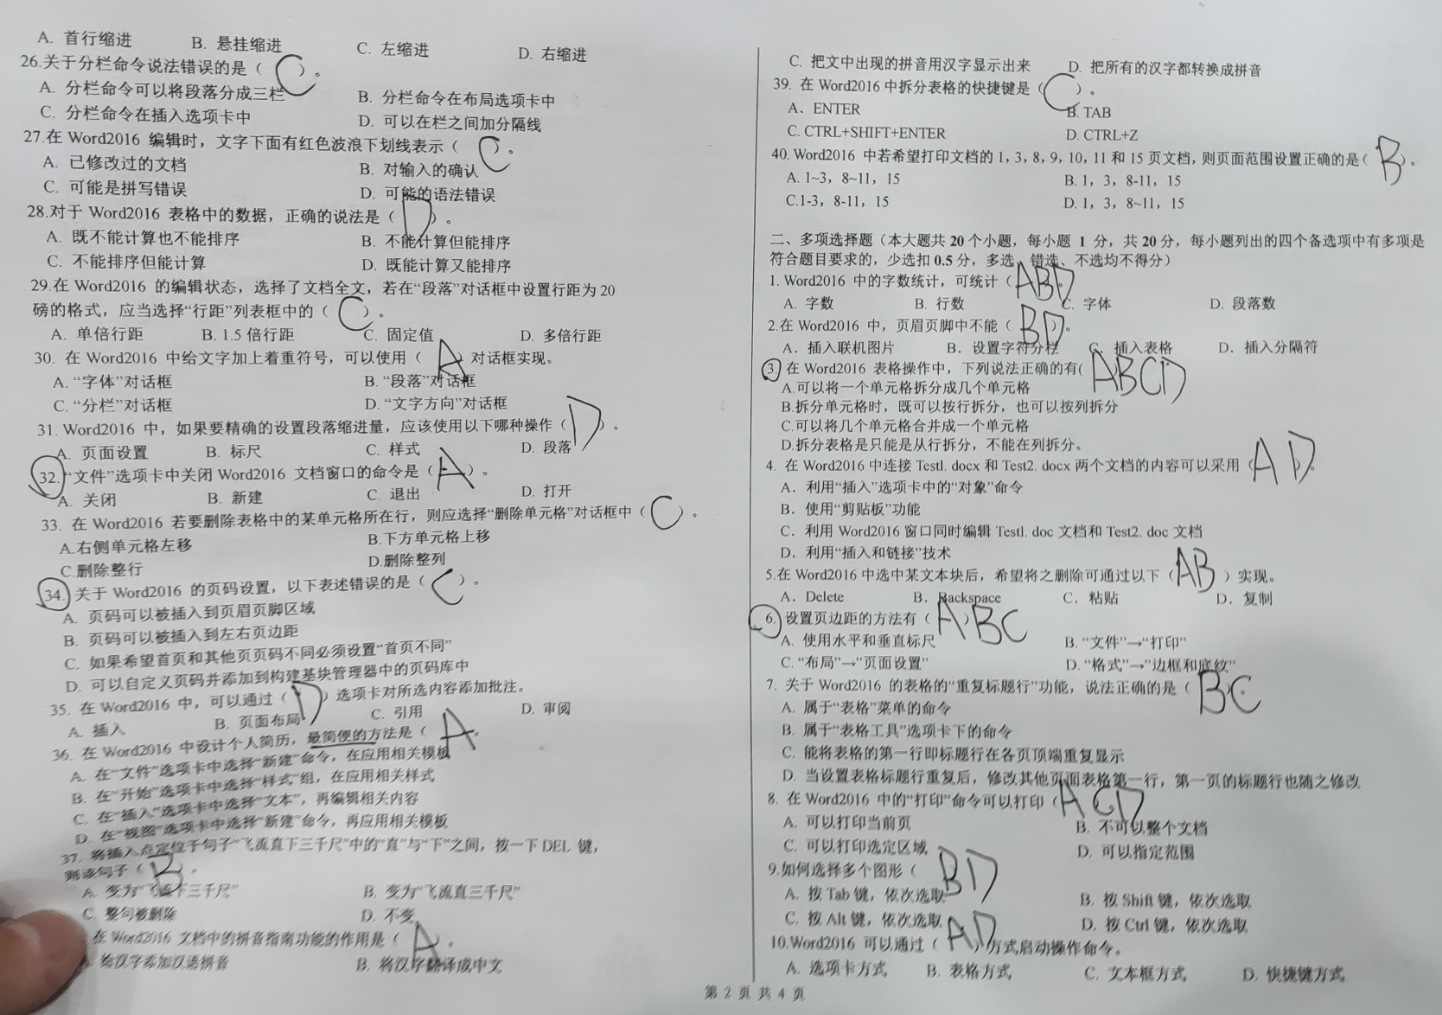 A. 首行缩进 B. 悬挂缩进 C. 左缩进 D. 右缩进
26.关于分栏命令说法错误的是（ C ）。
A. 分栏命令可以将段落分成三栏 B. 分栏命令在布局选项卡中
C. 分栏命令在插入选项卡中 D. 可以在栏之间加分隔线
27.在 Word2016 编辑时，文字下面有红色波浪下划线表示（ C ）。
A. 已修改过的文档 B. 对输入的确认
C. 可能是拼写错误 D. 可能的语法错误
28.对于 Word2016 表格中的数据，正确的说法是（ D ）。
A. 既不能计算也不能排序 B. 不能计算但能排序
C. 不能排序但能计算 D. 既能计算又能排序
29.在 Word2016 的编辑状态，选择了文档全文，若在“段落”对话框中设置行距为 20
磅的格式，应当选择“行距”列表框中的（ C ）。
A. 单倍行距 B. 1.5 倍行距 C. 固定值 D. 多倍行距
30. 在 Word2016 中给文字加上着重符号，可以使用（ A ）对话框实现。
A. “字体”对话框 B. “段落”对话框
C. “分栏”对话框 D. “文字方向”对话框
31. Word2016 中，如果要精确的设置段落缩进量，应该使用以下哪种操作（ D ）。
A. 页面设置 B. 标尺 C. 样式 D. 段落
32. “文件”选项卡中关闭 Word2016 文档窗口的命令是（ A ）。
A. 关闭 B. 新建 C. 退出 D. 打开
33. 在 Word2016 若要删除表格中的某单元格所在行，则应选择“删除单元格”对话框中（ C ）。
A.右侧单元格左移 B.下方单元格上移
C.删除整行 D.删除整列
34. 关于 Word2016 的页码设置，以下表述错误的是（ C ）。
A. 页码可以被插入到页眉页脚区域
B. 页码可以被插入到左右页边距
C. 如果希望首页和其他页页码不同必须设置“首页不同”
D. 可以自定义页码并添加到构建基块管理器中的页码库中
35. 在 Word2016 中，可以通过（ D ）选项卡对所选内容添加批注。
A. 插入 B. 页面布局 C. 引用 D. 审阅
36. 在 Word2016 中设计个人简历，最简便的方法是（ A ）。
A. 在“文件”选项卡中选择“新建”命令，在应用相关模板
B. 在“开始”选项卡中选择“样式”组，在应用相关样式
C. 在“插入”选项卡中选择“文本”，再编辑相关内容
D. 在“视图”选项卡中选择“新建”命令，再应用相关模板
37. 将插入点定位于句子“飞流直下三千尺”中的“直”与“下”之间，按一下 DEL 键，
则该句子（ B ）。
A. 变为“飞流下三千尺” B. 变为“飞流直三千尺”
C. 整句被删除 D. 不变
在 Word2016 文档中的拼音指南功能的作用是（ A ）。
给汉字添加汉语拼音 B. 将汉字翻译成中文
C. 把文中出现的拼音用汉字显示出来 D. 把所有的汉字都转换成拼音
39. 在 Word2016 中拆分表格的快捷键是（ C ）。
A. ENTER B. TAB
C. CTRL+SHIFT+ENTER D. CTRL+Z
40. Word2016 中若希望打印文档的 1，3，8，9，10，11 和 15 页文档，则页面范围设置正确的是（ B ）。
A. 1~3，8~11，15 B. 1，3，8-11，15
C.1-3，8-11，15 D. 1，3，8~11，15
二、多项选择题（本大题共 20 个小题，每小题 1 分，共 20 分，每小题列出的四个备选项中有多项是
符合题目要求的，少选扣 0.5 分，多选、错选、不选均不得分）
1. Word2016 中的字数统计，可统计（ ABD ）。
A. 字数 B. 行数 C. 字体 D. 段落数
2.在 Word2016 中，页眉页脚中不能（ BD ）。
A. 插入联机图片 B. 设置字符分栏 C. 插入表格 D. 插入分隔符
3. 在 Word2016 表格操作中，下列说法正确的有( ABCD
A.可以将一个单元格拆分成几个单元格
B.拆分单元格时，既可以按行拆分，也可以按列拆分
C.可以将几个单元格合并成一个单元格
D.拆分表格是只能是从行拆分，不能在列拆分。
4. 在 Word2016 中连接 Testl. docx 和 Test2. docx 两个文档的内容可以采用（ AD ）。
A. 利用“插入”选项卡中的“对象”命令
B. 使用“剪贴板”功能
C. 利用 Word2016 窗口同时编辑 Testl. doc 文档和 Test2. doc 文档
D. 利用“插入和链接”技术
5.在 Word2016 中选中某文本块后，希望将之删除可通过以下（ AB ）实现。
A. Delete B. Backspace C. 粘贴 D. 复制
6. 设置页边距的方法有（ ABC
A. 使用水平和垂直标尺 B. “文件”→“打印”
C. “布局”→”页面设置” D. “格式”→”边框和底纹”
7. 关于 Word2016 的表格的“重复标题行”功能，说法正确的是（ BC ）。
A. 属于“表格”菜单的命令
B. 属于“表格工具”选项卡下的命令
C. 能将表格的第一行即标题行在各页顶端重复显示
D. 当设置表格标题行重复后，修改其他页面表格第一行，第一页的标题行也随之修改
8. 在 Word2016 中的“打印”命令可以打印（ ACD
A. 可以打印当前页 B. 不可以整个文档
C. 可以打印选定区域 D. 可以指定范围
9.如何选择多个图形（ BD
A. 按 Tab 键，依次选取 B. 按 Shift 键，依次选取
C. 按 Alt 键，依次选取 D. 按 Ctrl 键，依次选取
10.Word2016 可以通过（ AD ）方式启动操作命令。
A. 选项卡方式 B. 表格方式 C. 文本框方式 D. 快捷键方式
第 2 页 共 4 页